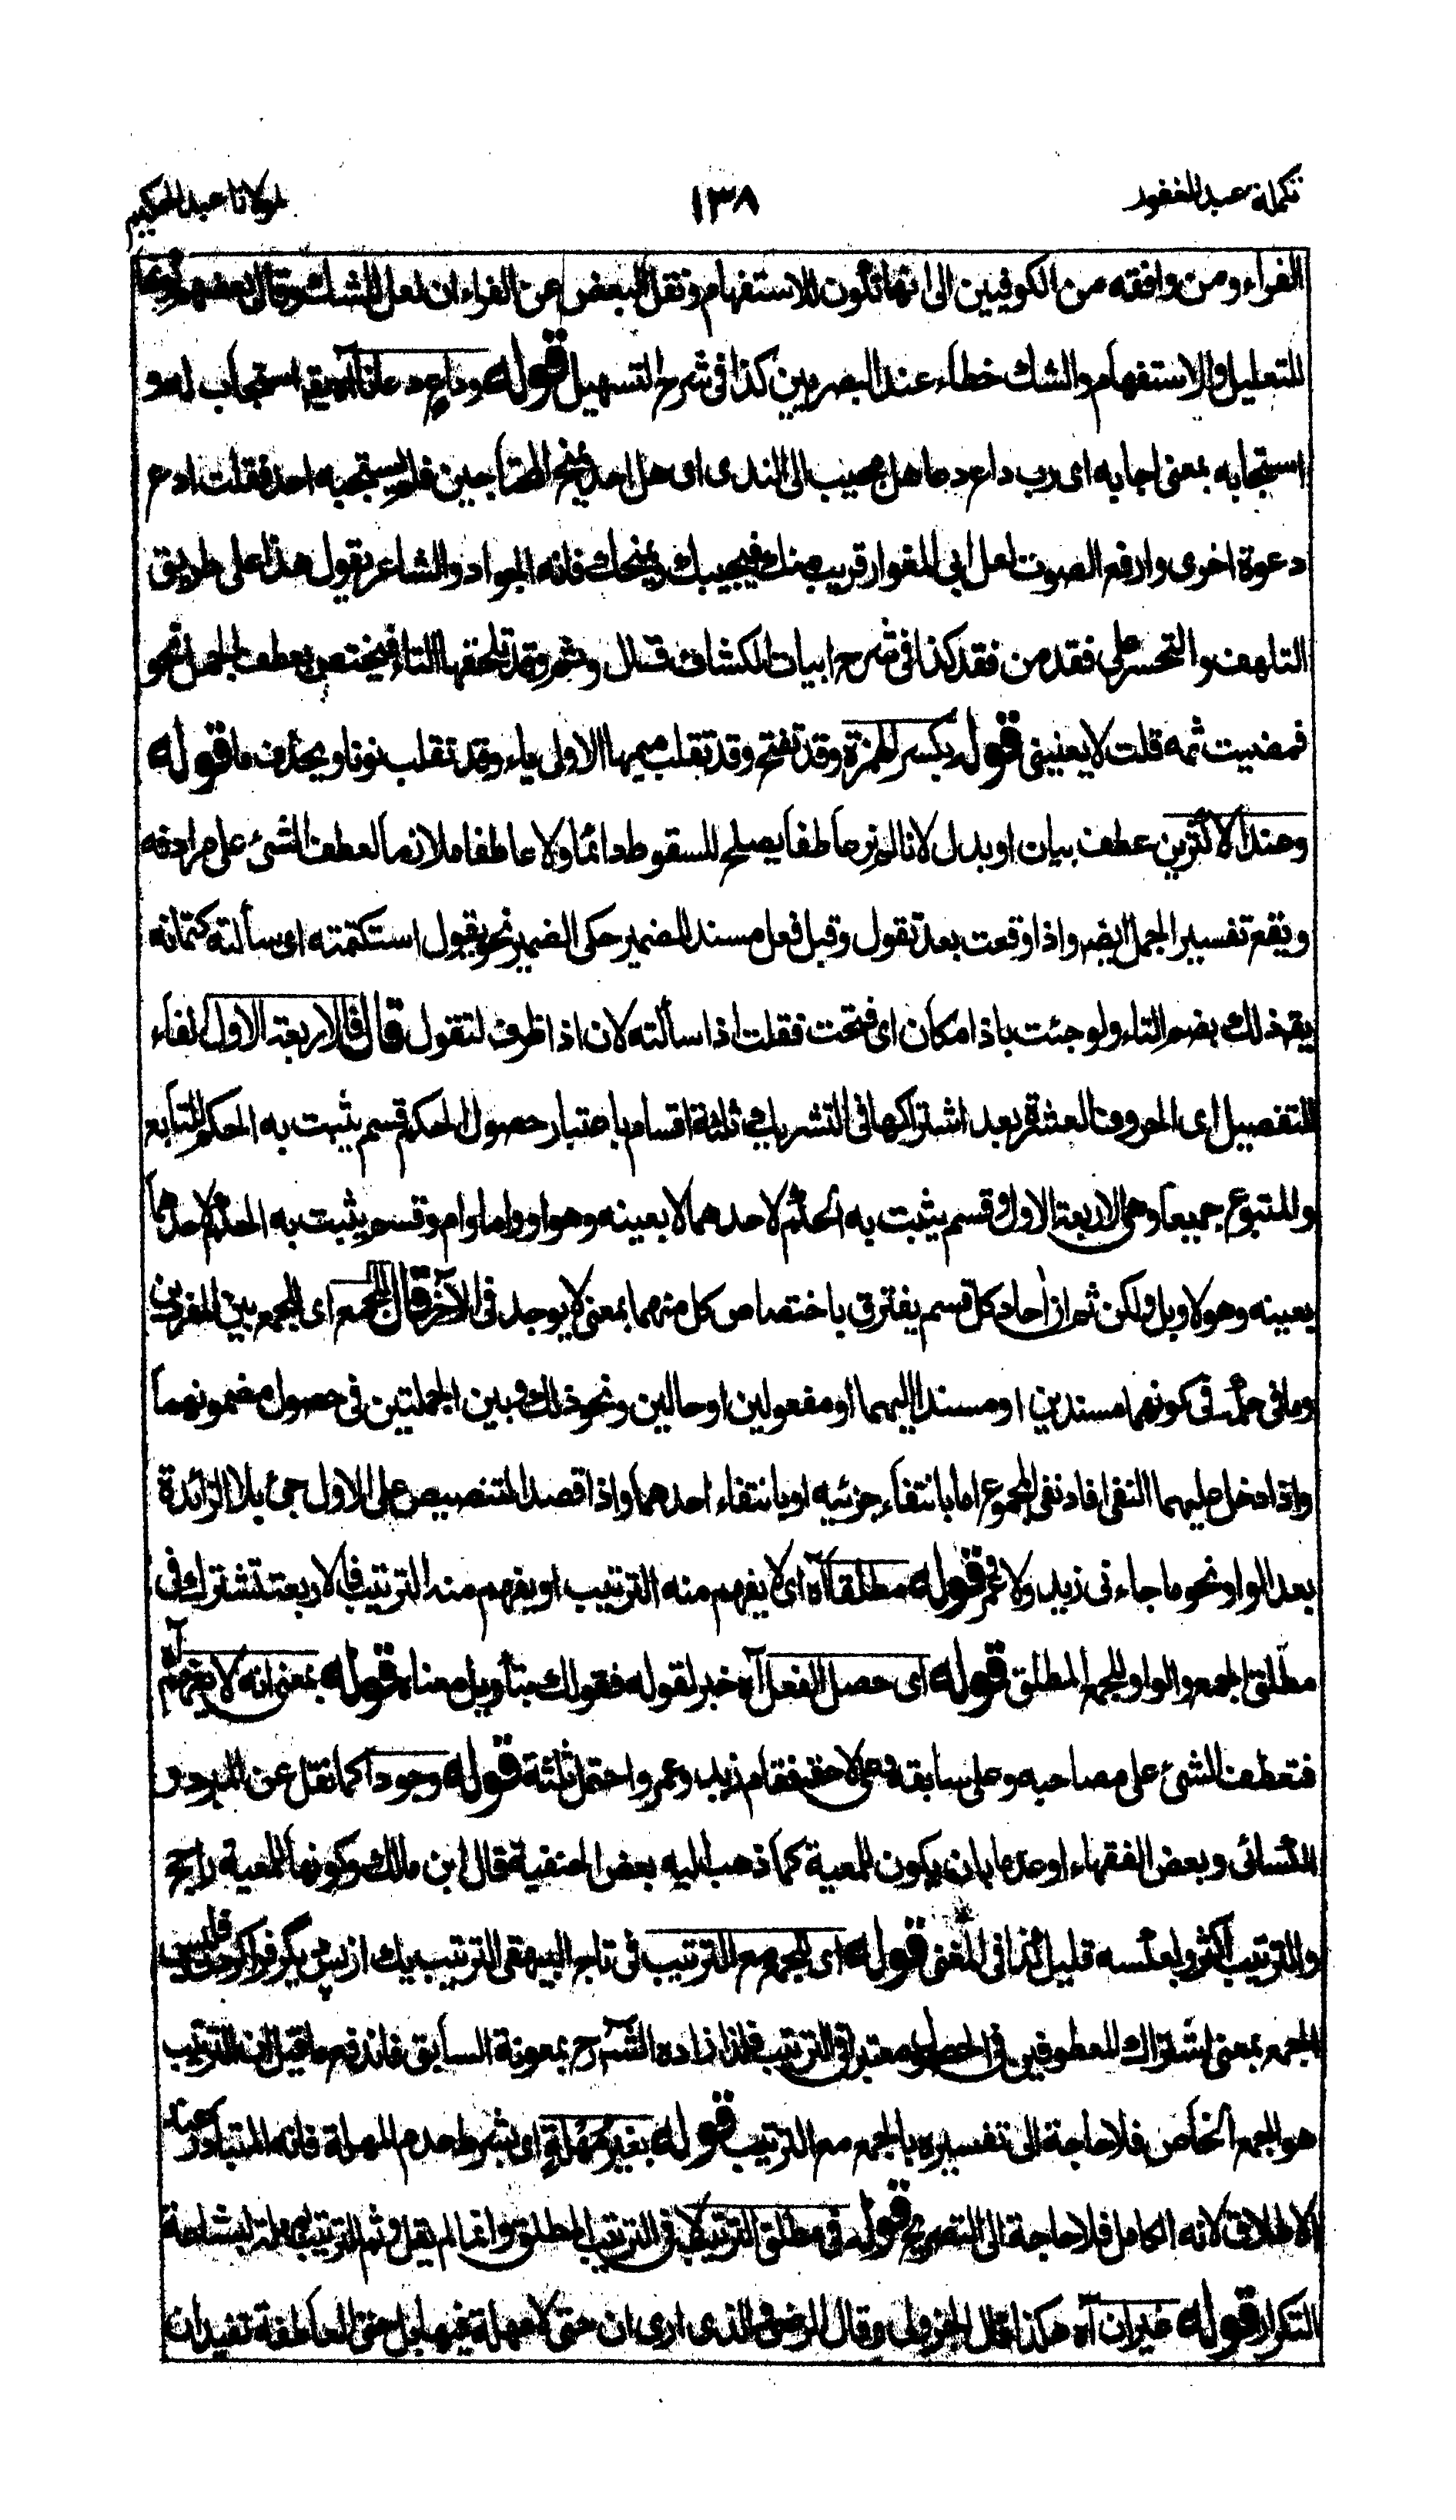 تكملة عبد الغفور
١٣٨
مولانا عبد الحكيم
الفراء ومن وافقه من الكوفيين الى انها تكون للاستفهام ونقل البعض عن الفراء ان لعل للشك وقال بعضهم
للتعليل والاستفهام والشك خطاء عند البصريين كذا فى شرح التسهيل قوله وداع دعانا آه يقه استجاب له و
استجابه بمعنى اجابه اى رب داع دعا هل مجيب الى الندى اى هل احد يمنح المحتاجين فلم يستجبه احد فقلت ادع
دعوة اخرى وارفع الصوت لعل ابى المغوار قريب منك فيجيبك ويمنحك فانه الجواد والشاعر يقول هذا على طريق
التلهف والتحسر على فقد من فقد كذا فى شرح ابيات الكشاف قال وثم وقد تلحقها التاء فيختص بعطف الجمل نحو
فمضيت ثمه قلت لا يعنينى قوله بكسر الهمزة وقد تفتح وقد تقلب ميمها الاولى ياء وقد تقلب نونا ويحذف ما قوله
وعند الاكثرين عطف بيان او بدل لانا لم نر عاطفا يصلح للسقوط دائما ولا عاطفا ملازما لعطف الشئ على مرادفه
وتقع تفسير الجمل ايضه واذا وقعت بعد تقول وقبل فعل مسند للضمير حكى الضمير نحو يقول استكتمته اى سألته كتمانه
يقه ذلك بضم التاء ولو جئت باذا مكان اى فتحت فقلت اذا سألته لان اذا ظرف لتقول قال فالاربعة الاول الفاء
للتفصيل اى الحروف العشرة بعد اشتراكها فى التشريك ثلثة اقسام باعتبار حصول الحكم قسم يثبت به الحكم للتابع
والمتبوع جميعا وهى الاربعة الاول وقسم يثبت به الحكم لاحدهما لا بعينه وهو او واما وام وقسم يثبت به الحكم لاحدهما
بعينه وهو لا وبل ولكن ثم ان احاد كل قسم يفترق باختصاص كل منهما بمعنى لا يوجد فى الآخر قال للجمع اى للجمع بين المفردين
وما فى حكمه فى كونهما مسندين او مسندا اليهما او مفعولين او حالين ونحو ذلك وبين الجملتين فى حصول مضمونهما
واذا دخل عليهما النفى افاد نفى المجموع اما بانتفاء جزئيه او بانتفاء احدهما واذا قصد التنصيص على الاول جئ بلا الزائدة
بعد الواو نحو ما جاءنى زيد ولا عمرو قوله مطلقا آه اى لا يفهم منه الترتيب او يفهم منه الترتيب فالاربعة تشترك فى
مطلق الجمع والواو للجمع المطلق قوله اى حصل الفعل آه خبر لقوله فقولك بتأويل معناه قوله بمعنى انه لا يفهم
فتعطف الشئ على مصاحبه وعلى سابقه وعلى لاحقه فقام زيد وعمرو احتمل ثلثة قوله وجودا كما نقل عن المبرد و
الكسائى وبعض الفقهاء او عدما بان يكون للمعية كما ذهب اليه بعض الحنفية قال ابن مالك وكونها للمعية راجح
والترتيب اكثر ولعكسه قليل كذا فى المغنى قوله اى للجمع مع الترتيب فى تاج البيهقى الترتيب يك از پس ديگر فرا كردن فليس
الجمع بمعنى اشتراك المعطوفين فى الحصول معتبرا فى الترتيب فلذا زاده الشارح بمعونة السابق فاندفع ما قيل ان الترتيب
هو الجمع الخاص فلا حاجة الى تفسيره بالجمع مع الترتيب قوله بغير مهلة اى بشرط عدم المهلة فانه المتبادر عند
الاطلاق لانه الكامل فلا حاجة الى التصريح قوله فى مطلق الترتيب لا فى الترتيب المطلق وانما لم يقل وثم للترتيب بمهلة لبشاعة
التكرار قوله غير ان آه هكذا قال الجزولى وقال الرضى الذى ارى ان حتى لا مهلة فيها بل حتى العاطفة تفيد ان